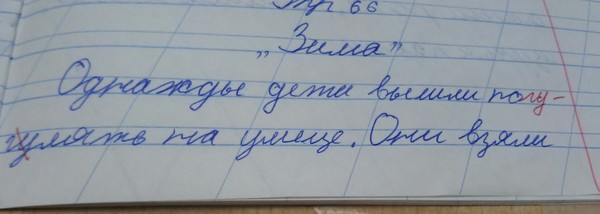 Упр 66
„Зима”
Однажды дети вышли погу-
гулять на улице. Они взяли